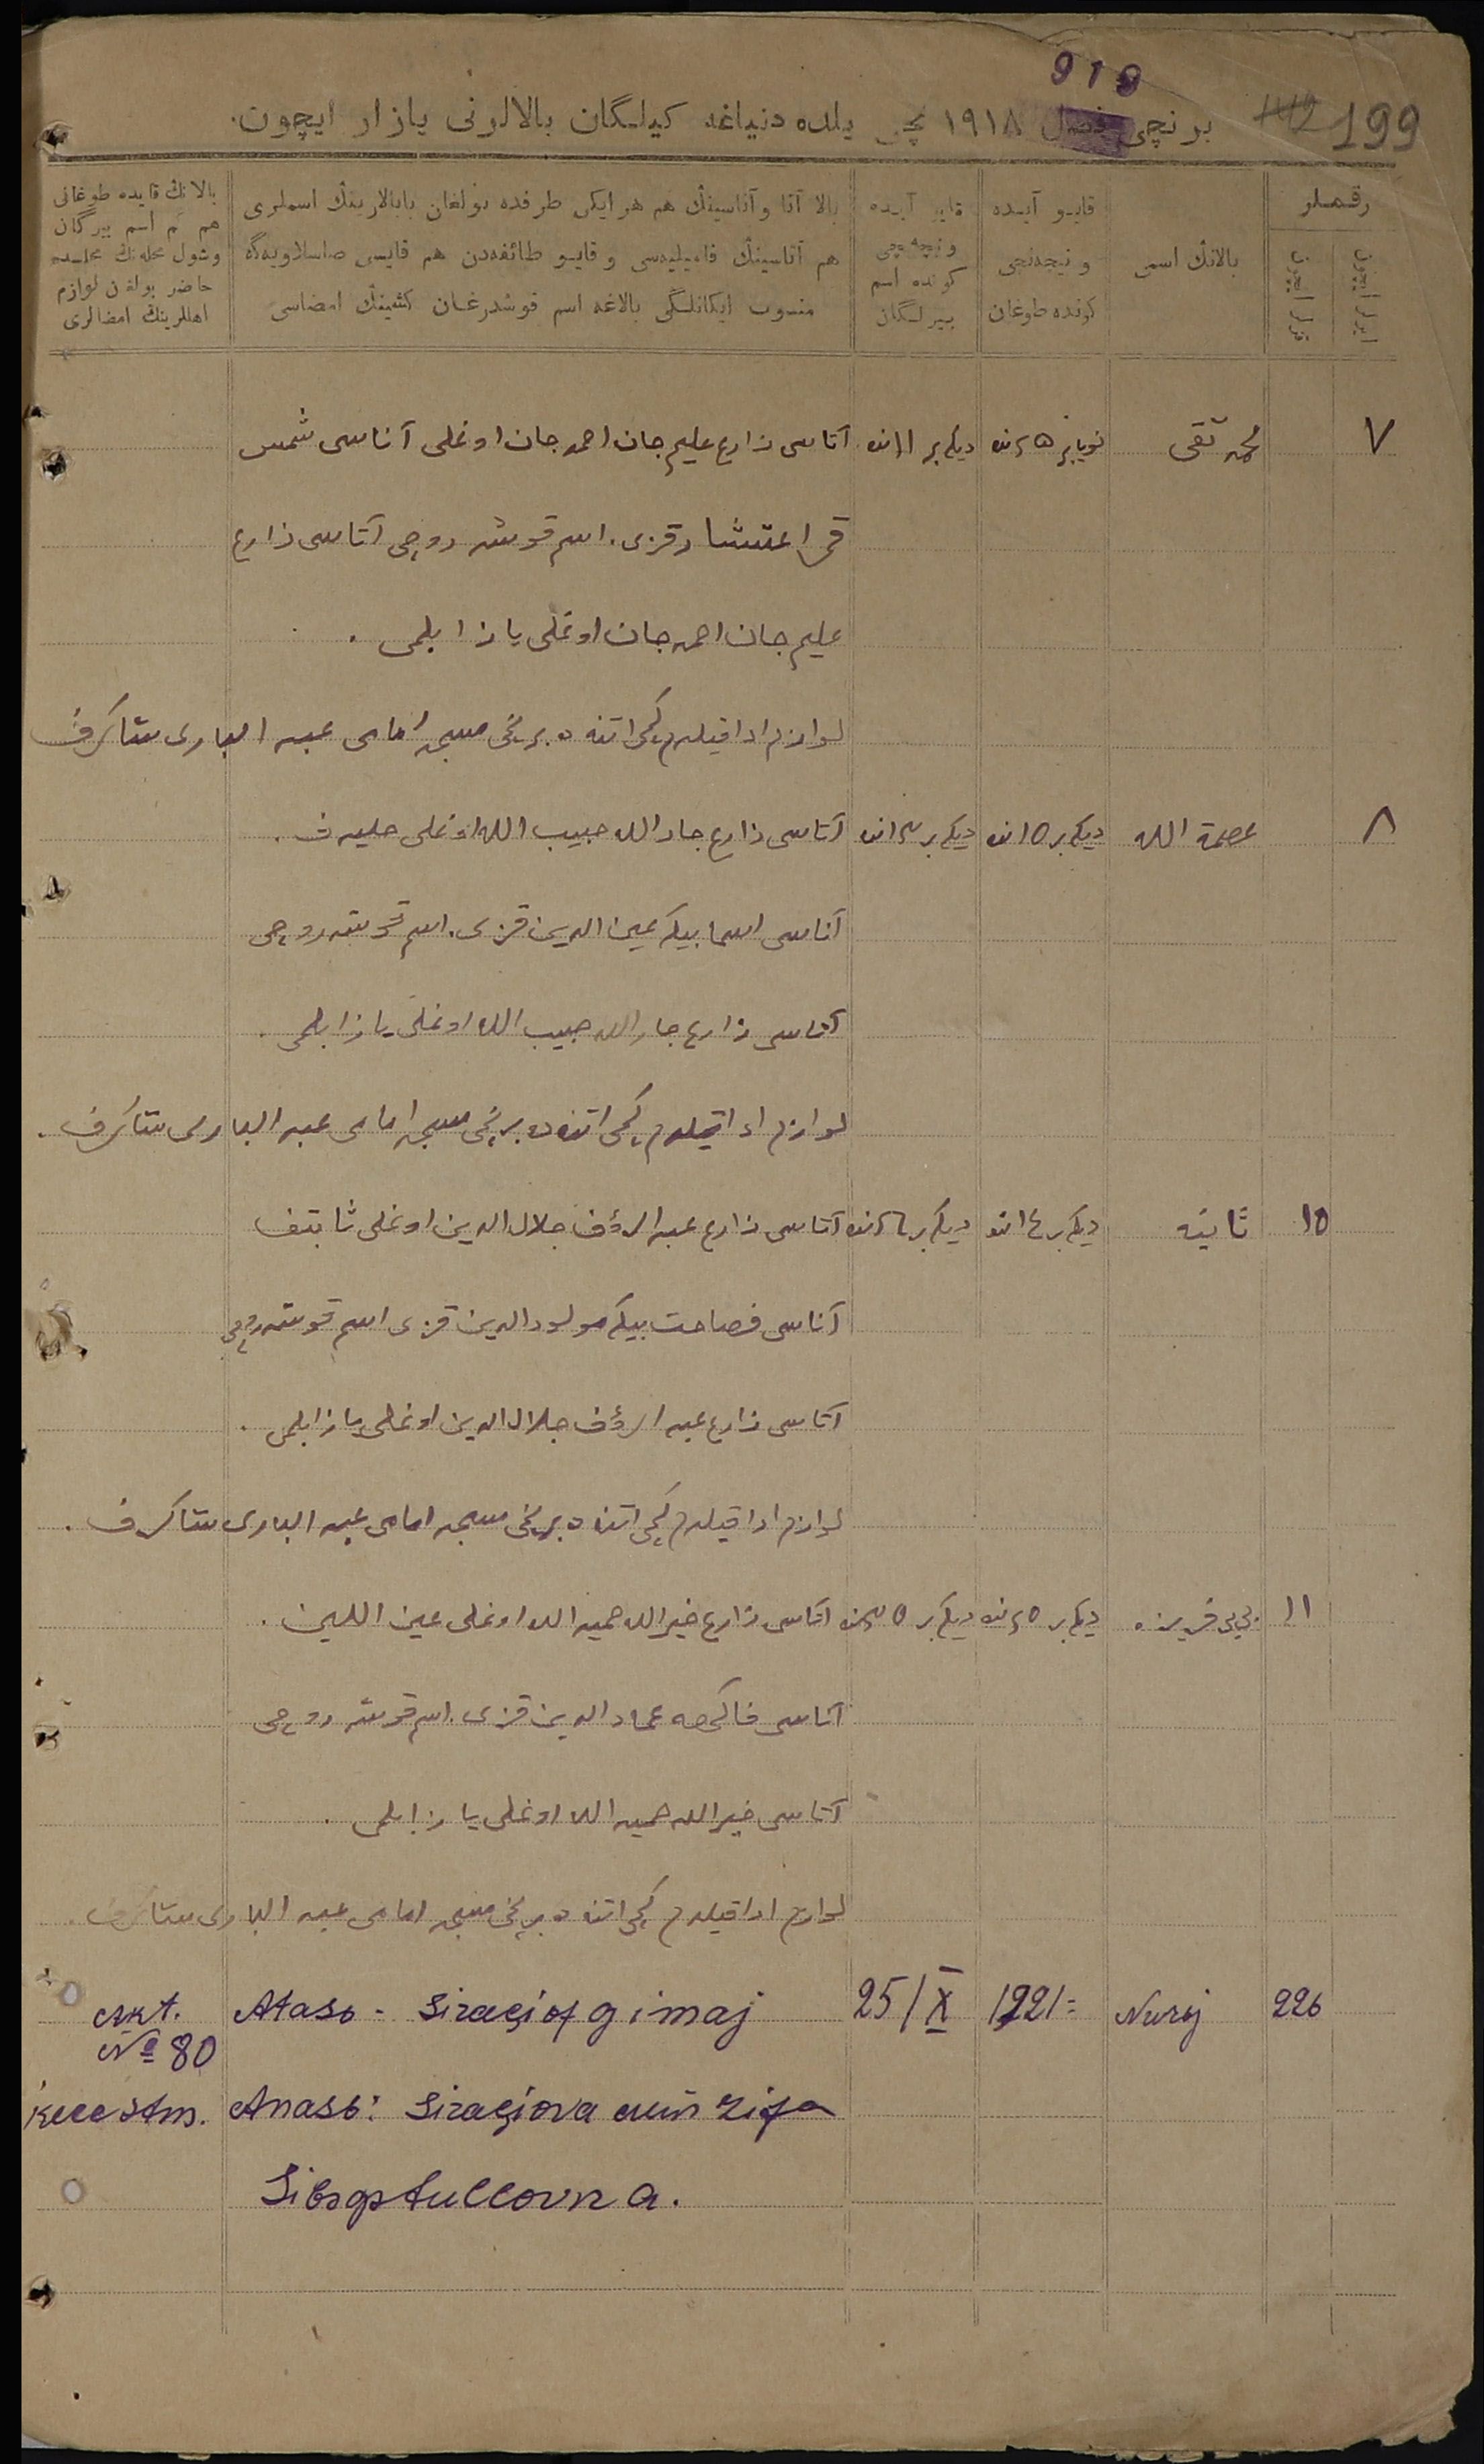 919
199
برنچی فصل ١٩١٨ نچی یلده دنیاغه کیلگان بالالرنی یازار ایچون.
رقملر
ایرلر ایچون
قزلر ایچون
بالانڭ اسمی
قایو آیده
و نیچه‌نچی
کونده طوغان
قایو آیده
و نیچه‌نچی
کونده اسم
بیرلگان
بالا آتا و آناسینڭ هم هر ایکی طرفده بولغان بابالارینڭ اسملری
هم آتاسینڭ فامیلیه‌سی و قایو طائفه‌دن هم قایسی صاسلاویه‌گه
منسوب ایکانلگی بالاغه اسم قوشدرغان کشینڭ امضاسی
بالانڭ قایده طوغانی
هم کم اسم بیرگان
وشول محله‌نڭ مجلسده
حاضر بولغان لوازم
اهللرینڭ امضالری
٧
محمد تقی
نویابر ٢٥ نده
دیکابر ١١ نده
آتاسی زارع علیم جان احمد جان اوغلی آناسی شمس
قمر اعتشاد قزی. اسم قوشدروچی آتاسی زارع
علیم جان احمد جان اوغلی یازا بلمی.
لوازم ادا قیلدم کچی اتنه ده برنچی مسجد امامی عبد الباری شاکرف
٨
عصمة الله
دیکابر ١٥ نده
آتاسی زارع جار الله حبیب الله اوغلی
آناسی اسما بیکه یمین الدین قزی. اسم قوشدروچی
آتاسی زارع جار الله حبیب الله اوغلی یازا بلمی.
لوازم ادا قیلدم کچی اتنه ده برنچی مسجد امامی عبد الباری شاکرف.
١٥
ثانیه
آتاسی زارع عبد الرؤف جلال الدین اوغلی ثابتف
آناسی فصاحت بیکه مولود الدین قزی اسم قوشدروچی
آتاسی زارع عبد الرؤف جلال الدین اوغلی یازا بلمی.
لوازم ادا قیلدم کچی اتنه ده برنچی مسجد امامی عبد الباری شاکرف.
١١
بی بی فریزه
دیکابر ٢٥ نده
آتاسی زارع خیر الله حمید الله اوغلی عین اللین.
آناسی فاکهه عماد الدین قزی. اسم قوشدروچی
آتاسی خیر الله حمید الله اوغلی یازا بلمی.
لوازم ادا قیلدم کچی اتنه ده برنچی مسجد امامی عبد الباری شاکرف.
226
Nurəj
1921=
25/X
Atasь - Siraçiof gimaj
Akt.
№ 80
Anasь: Siraçiova min zifa
Sibgatullovna.